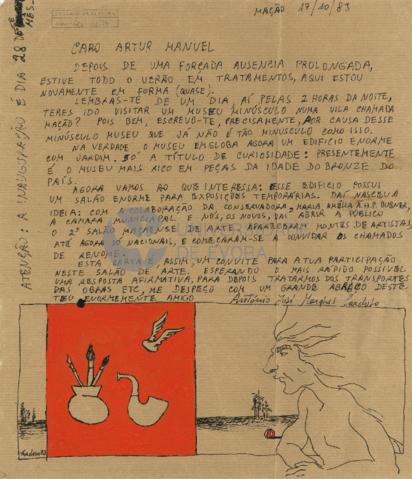 MAÇÃO 17/10/83
CARO ARTUR MANUEL
DEPOIS DE UMA FORÇADA AUSENCIA PROLONGADA,
ESTIVE TODO O VERÃO EM TRATAMENTOS, AQUI ESTOU
NOVAMENTE EM FORMA (QUASE).
LEMBRAS-TE DE UM DIA, AÍ PELAS 2 HORAS DA NOITE,
TERES IDO VISITAR UM MUSEU MINÚSCULO NUMA VILA CHAMADA
MAÇÃO? POIS BEM, ESCREVO-TE, PRECISAMENTE, POR CAUSA DESSE
MINÚSCULO MUSEU QUE JÁ NÃO É TÃO MINUSCULO COMO ISSO.
NA VERDADE, O MUSEU EMGLOBA AGORA UM EDIFICIO ENORME
COM JARDIM. SÓ A TÍTULO DE CURIOSIDADE: PRESENTEMENTE
É O MUSEU MAIS RICO EM PEÇAS DA IDADE DO BRONZE DO
PAÍS.
AGORA VAMOS AO QUE INTERESSA: ESSE EDIFICIO POSSUI
UM SALÃO ENORME PARA EXPOSIÇÕES TEMPORÁRIAS. DAÍ NASCEU A
IDEIA: COM A COLABORAÇÃO DA CONSERVADORA, MARIA AMÉLIA H.P. BUBNER,
A CÂMARA MUNICIPAL E NÓS, OS NOVOS, VAI ABRIR A PÚBLICO
O 2º SALÃO DE ARTE. APARECERAM MONTES DE ARTISTAS,
ATÉ AGORA SÓ NACIONAIS, E COMEÇARAM-SE A CONVIDAR OS CHAMADOS
DE RENOME.
ESTA CARTA É ASSIM UM CONVITE PARA A TUA PARTICIPAÇÃO
NESTE SALÃO DE ARTE. ESPERANDO O MAIS RÁPIDO POSSIVEL
UMA RESPOSTA AFIRMATIVA, PARA DEPOIS TRATARMOS DOS TRANSPORTES
DAS OBRAS ETC, ME DESPEÇO COM UM GRANDE ABRAÇO DESTE
TEU ENORMEMENTE AMIGO
António José
ATENÇÃO: A INAUGURAÇÃO É DIA 28 DESTE MÊS
UNIVERSIDADE
DE ÉVORA